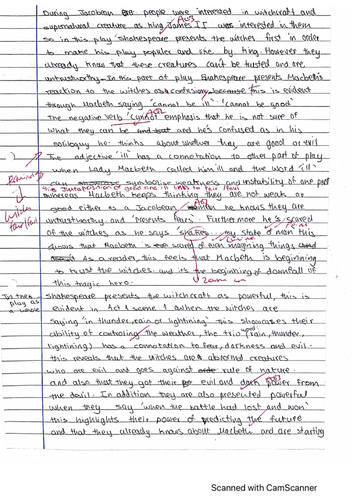 During Jacobean people were interested in witchcraft and
AO3
supernatural creature as king James II was interested in them
So in this play Shakespeare presents the witches first in order
to make his play popular and by king. However they
already know that these creatures can't be trusted and are
untrustworthy. In this part of play Shakespeare presents Macbeth's
reaction to the witches as confusion, because this is evident
through Macbeth saying 'cannot be ill' 'cannot be good'
AO2
The negative verb 'cannot' emphasis that he is not sure of
what they can be and he's confused as in his
soliloquy he thinks about whether they are good or evil
The adjective 'ill' has a connotation to other part of play
when Lady Macbeth called him ill and the word 'ill'
symbolise weakness and instability of
This juxtaposition of good and ill links to fair foul
whereas Macbeth keeps thinking they are not weak or
good either as a Jacobean he knows they are
AO1
untrustworthy and 'presents fears'. Furthermore he's scared
of the witches as he says 'shakes my state of man' this
shows that Macbeth is scared of even imagining things
As a reader, this feels that Macbeth is beginning
to trust the witches and its beginning of downfall of
this tragic hero.
In the play as a whole
Shakespeare presents the witchcraft as powerful, this is
evident in Act 1 scene 1 when the witches are
saying "in thunder, rain or lightning" this showcases their
ability of controlling the weather. The trio (rain, thunder,
lightning) has a connotation to fear, darkness and evil.
this reveals that the witches are abnormal creatures
who are evil and goes against rule of nature
and also that they got their evil and dark power from
the devil. In addition they are also presented powerful
when they say 'when the battle had lost and won'
this highlights their power of predicting the future
and that they already knows about Macbeth and are starting
Scanned with CamScanner